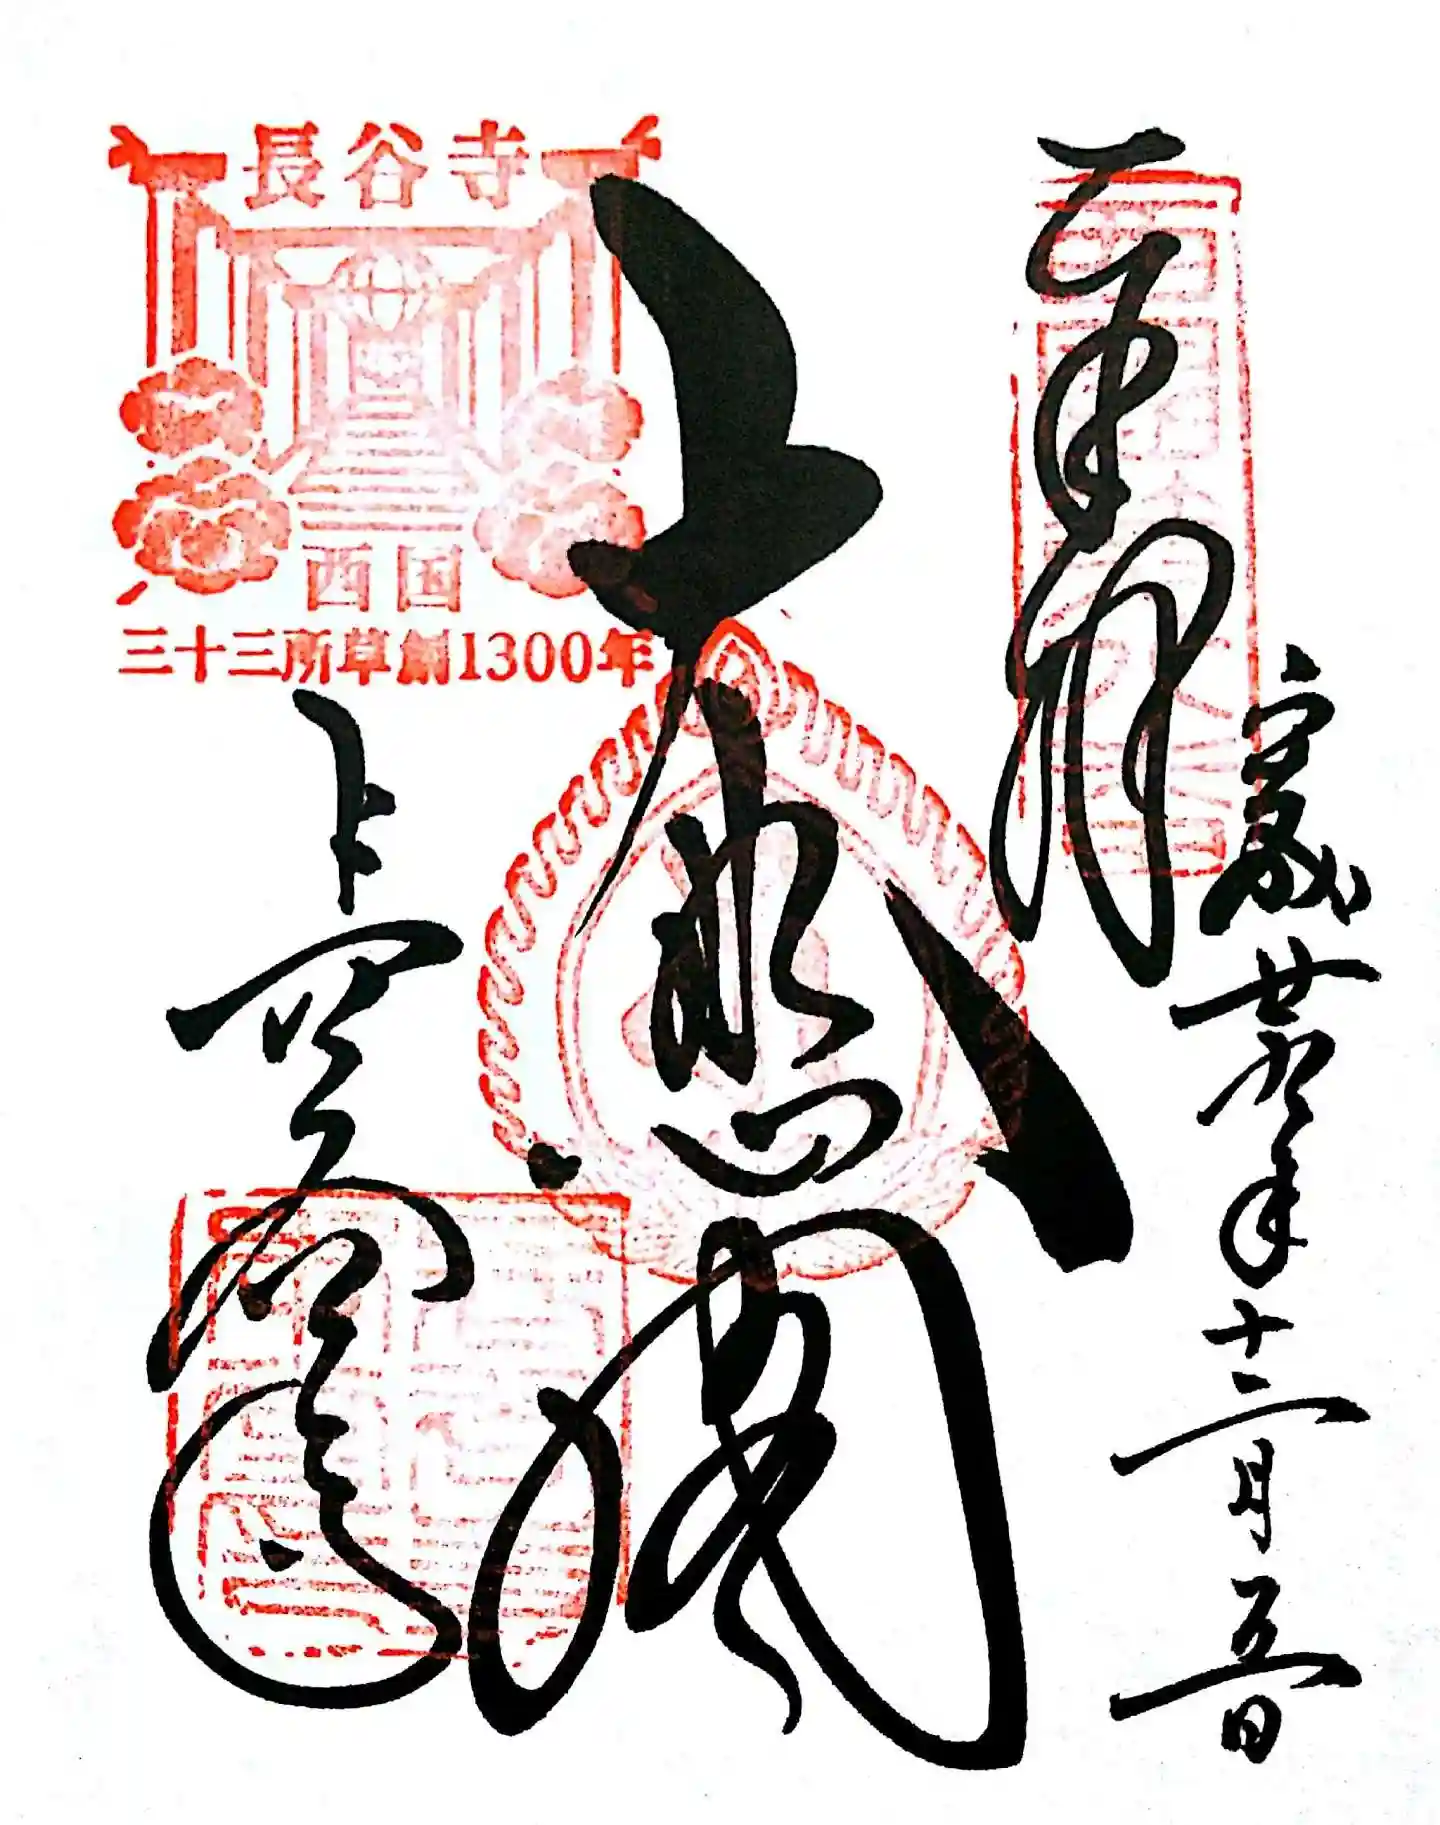 奉拝
平成廿九年十二月五日
大悲閣
長谷寺
西国
三十三所草創1300年
長谷寺